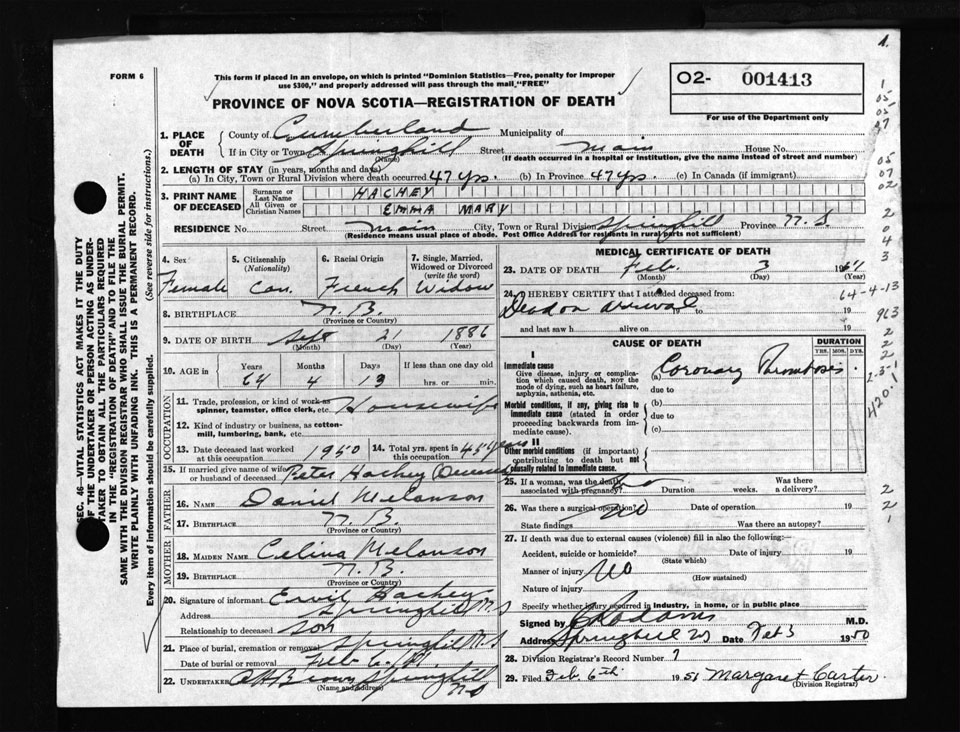 1.
FORM 6
This form if placed in an envelope, on which is printed "Dominion Statistics—Free, penalty for improper
use $300," and properly addressed will pass through the mail, "FREE"
PROVINCE OF NOVA SCOTIA—REGISTRATION OF DEATH
O2- 001413
For use of the Department only
1. PLACE OF DEATH
County of Cumberland Municipality of
If in City or Town Springhill Street Main House No.
(Name) (If death occurred in a hospital or institution, give the name instead of street and number)
2. LENGTH OF STAY (in years, months and days)
(a) In City, Town or Rural Division where death occurred 47 yrs. (b) In Province 47 yrs. (c) In Canada (if immigrant)
3. PRINT NAME OF DECEASED
Surname or Last Name HACHEY
All Given or Christian Names EMMA MARY
RESIDENCE No. Street Main City, Town or Rural Division Springhill Province N.S
(Residence means usual place of abode. Post Office Address for residents in rural parts not sufficient)
4. Sex Female
5. Citizenship (Nationality) Can.
6. Racial Origin French
7. Single, Married, Widowed or Divorced (write the word) Widow
8. BIRTHPLACE N.B.
(Province or Country)
9. DATE OF BIRTH Sept 21 1886
(Month) (Day) (Year)
10. AGE in Years Months Days If less than one day old
64 4 13 hrs. or min.
OCCUPATION
11. Trade, profession, or kind of work as spinner, teamster, office clerk, etc. Housewife
12. Kind of industry or business, as cotton-mill, lumbering, bank, etc.
13. Date deceased last worked at this occupation 1950
14. Total yrs. spent in this occupation 45 years
15. If married give name of wife or husband of deceased Peter Hachey Deceased
FATHER
16. NAME Daniel Melanson
17. BIRTHPLACE N.B.
(Province or Country)
MOTHER
18. MAIDEN NAME Celina Melanson
19. BIRTHPLACE N.B.
(Province or Country)
20. Signature of informant Hachey
Address Springhill N.S
Relationship to deceased Son
21. Place of burial, cremation or removal Springhill N.S
Date of burial or removal Feb 6
22. UNDERTAKER Brown Springhill
(Name and Address) N.S
MEDICAL CERTIFICATE OF DEATH
23. DATE OF DEATH Feb. 3 19
(Month) (Day) (Year)
24. I HEREBY CERTIFY that I attended deceased from:
Dead on arrival 19 to 19
and last saw h alive on 19
CAUSE OF DEATH
DURATION
YRS. MOS. DYS.
I
Immediate cause
Give disease, injury or complication which caused death, NOT the mode of dying, such as heart failure, asphyxia, asthenia, etc.
(a) Coronary Thrombosis.
due to
Morbid conditions, if any, giving rise to immediate cause (stated in order proceeding backwards from immediate cause).
(b)
due to
(c)
II
Other morbid conditions (if important) contributing to death but not causally related to immediate cause.
25. If a woman, was the death associated with pregnancy? no Duration weeks. Was there a delivery?
26. Was there a surgical operation? No Date of operation 19
State findings Was there an autopsy?
27. If death was due to external causes (violence) fill in also the following:—
Accident, suicide or homicide? Date of injury 19
(State which)
Manner of injury No
(How sustained)
Nature of injury
Specify whether injury occurred in industry, in home, or in public place
Signed by M.D.
Address Springhill NS Date Feb 3 1950
28. Division Registrar's Record Number 7
29. Filed Feb. 6th 1951 Margaret Carter.
(Division Registrar)
SEC. 46—VITAL STATISTICS ACT MAKES IT THE DUTY
OF THE UNDERTAKER OR PERSON ACTING AS UNDERTAKER
TO OBTAIN ALL THE PARTICULARS REQUIRED
IN THE "REGISTRATION OF DEATH" AND TO FILE THE
SAME WITH THE DIVISION REGISTRAR WHO SHALL ISSUE THE BURIAL PERMIT.
WRITE PLAINLY WITH UNFADING INK. THIS IS A PERMANENT RECORD.
Every item of information should be carefully supplied. (See reverse side for instructions.)
1
05
05
07
05
07
02
2
0
4
3
64-4-13
963
2
2
2-3-1
420.1
2
2
1